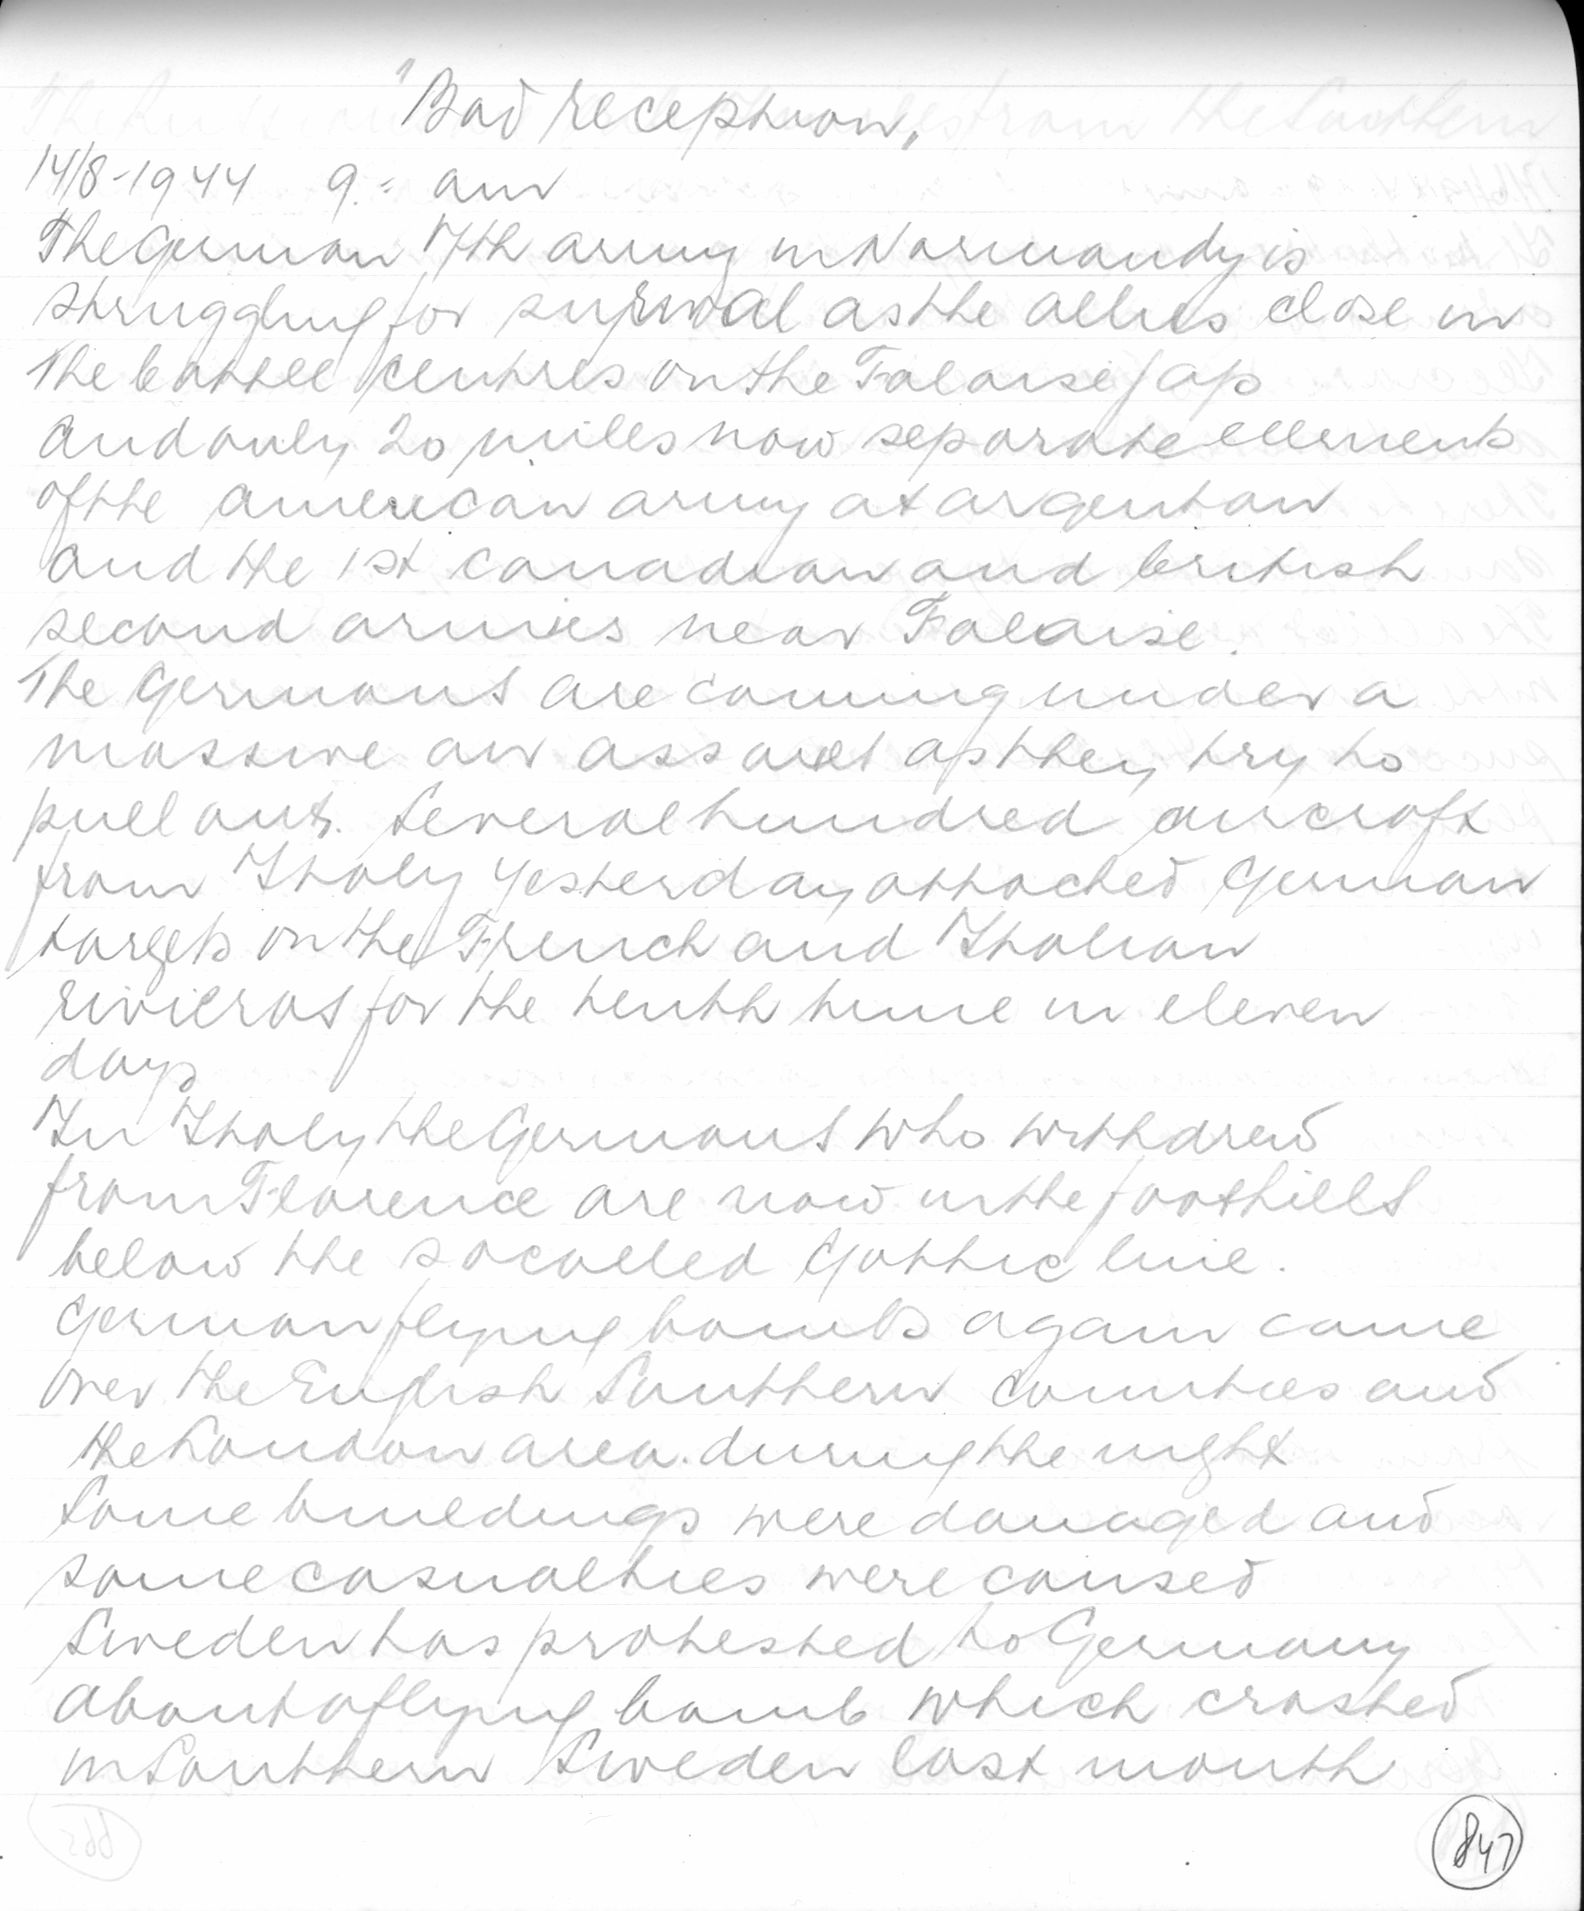 "Bad reception"
14/8-1944 9.= am
The German 7th army in Normandy is
struggling for survival as the allies close in
The battle centres on the Falaise gap
and only 20 miles now separate elements
of the american army at argentan
and the 1st canadian and british
second armies near Falaise.
The Germans are coming under a
massive air assault as they try to
pull out. Several hundred aircraft
from Italy yesterday attacked German
targets on the French and Italian
rivieras for the tenth time in eleven
days
In Italy the Germans who withdrew
from Florence are now in the foothills
below the socalled Gothic line.
German flying bombs again came
over the English Southern counties and
the London area. during the night
Some buildings were damaged and
some casualties were caused
Sweden has protested to Germany
about a flying bomb which crashed
in Southern Sweden last month
847